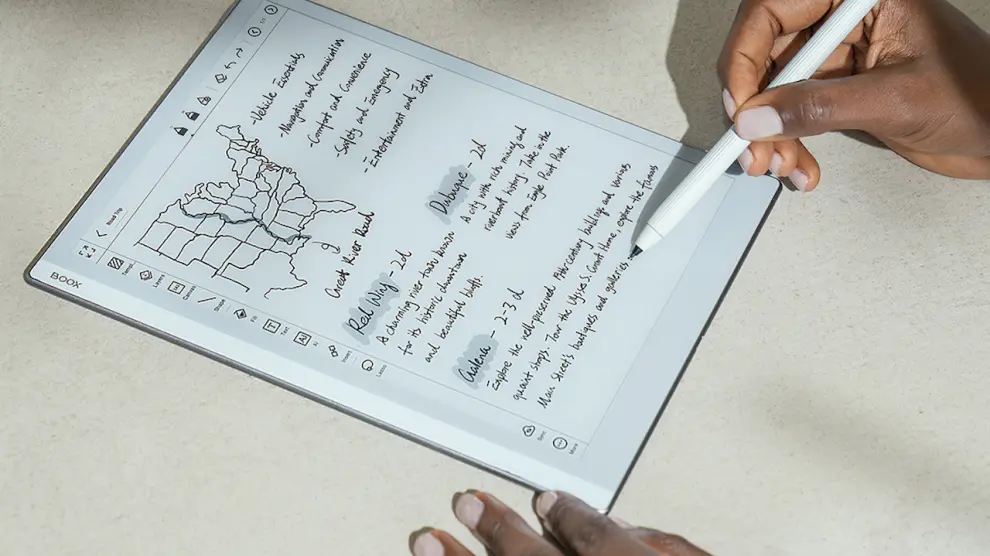 BOOX
Road Trip
1/1
Layers
Canvas
Shape
Fill
Text
AI
Insert
Lasso
Sync
More
-Vehicle Essentials
-Navigation and Communication
-Comfort and Convenience
-Safety and Emergency
-Entertainment and Extra
Great River Road
Red Wing - 2d
A charming river town known
for its historic downtown
and beautiful bluffs.
Dubuque - 2d
A city with rich mining and
riverboat history. Take in the
views from Eagle Point Park.
Galena - 2-3 d
Explore the well-preserved 19th-century buildings and various
quaint shops. Tour the Ulysses S. Grant Home, explore the famous
Main Street's boutiques and galleries